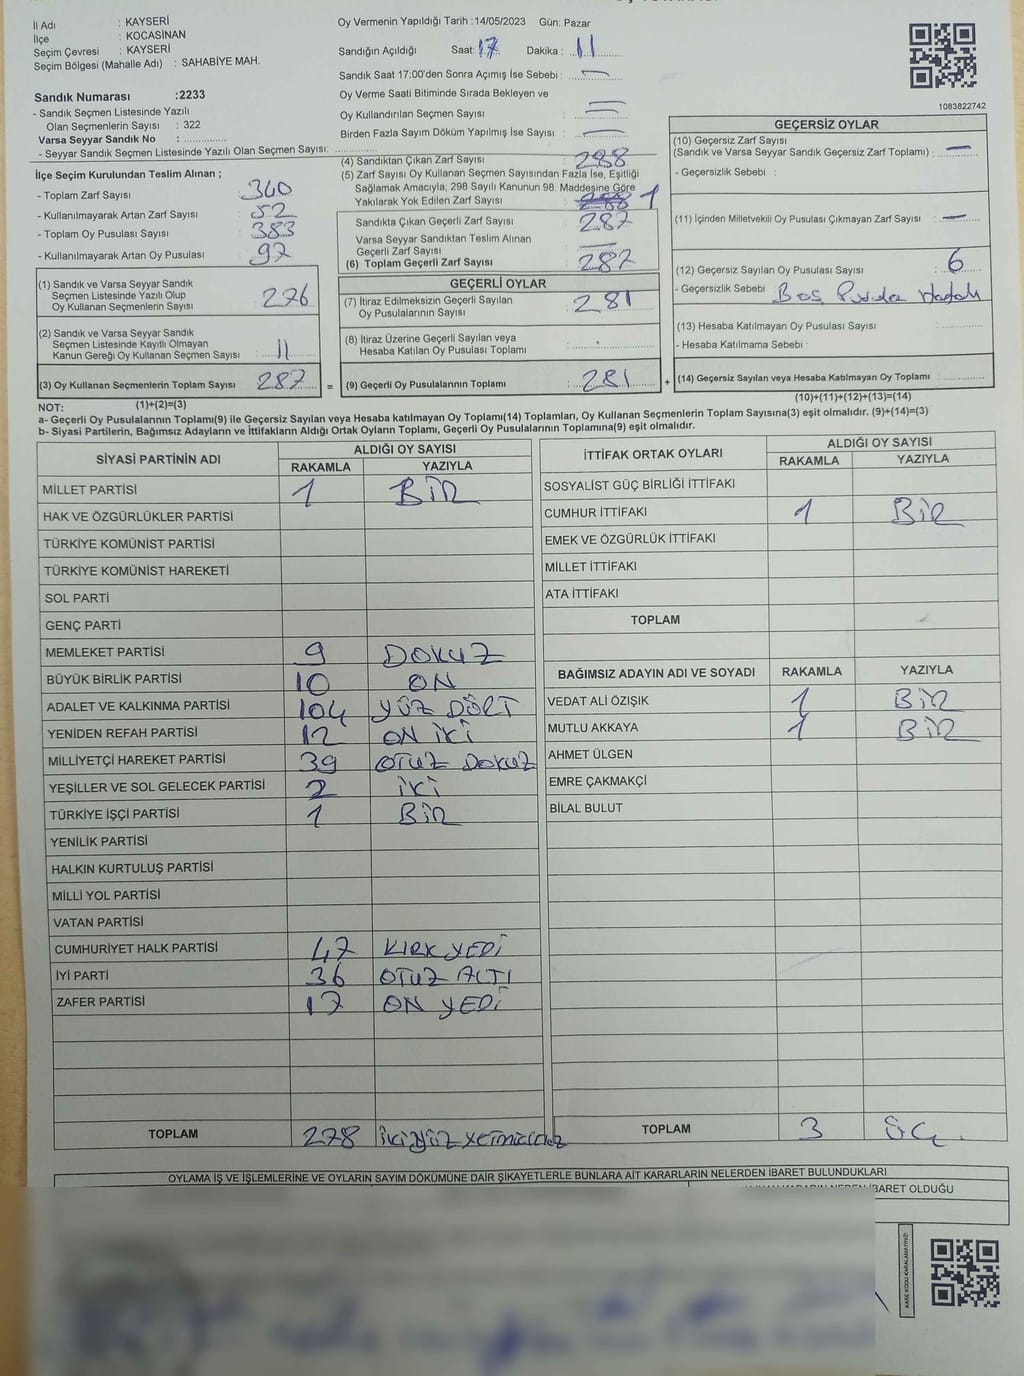 İl Adı : KAYSERİ
İlçe : KOCASİNAN
Seçim Çevresi : KAYSERİ
Seçim Bölgesi (Mahalle Adı) : SAHABİYE MAH.
Sandık Numarası :2233
- Sandık Seçmen Listesinde Yazılı
Olan Seçmenlerin Sayısı : 322
Varsa Seyyar Sandık No :
- Seyyar Sandık Seçmen Listesinde Yazılı Olan Seçmen Sayısı:
Oy Vermenin Yapıldığı Tarih :14/05/2023 Gün: Pazar
Sandığın Açıldığı Saat: 17 Dakika : 11
Sandık Saat 17:00'den Sonra Açımış İse Sebebi : —
Oy Verme Saati Bitiminde Sırada Bekleyen ve
Oy Kullandırılan Seçmen Sayısı :
Birden Fazla Sayım Döküm Yapılmış İse Sayısı :
1083822742
İlçe Seçim Kurulundan Teslim Alınan ;
- Toplam Zarf Sayısı : 340
- Kullanılmayarak Artan Zarf Sayısı : 52
- Toplam Oy Pusulası Sayısı : 383
- Kullanılmayarak Artan Oy Pusulası : 97
(1) Sandık ve Varsa Seyyar Sandık
Seçmen Listesinde Yazılı Olup
Oy Kullanan Seçmenlerin Sayısı : 276
(2) Sandık ve Varsa Seyyar Sandık
Seçmen Listesinde Kayıtlı Olmayan
Kanun Gereği Oy Kullanan Seçmen Sayısı : 11
(3) Oy Kullanan Seçmenlerin Toplam Sayısı : 287
(1)+(2)=(3)
(4) Sandıktan Çıkan Zarf Sayısı : 288
(5) Zarf Sayısı Oy Kullanan Seçmen Sayısından Fazla İse, Eşitliği
Sağlamak Amacıyla, 298 Sayılı Kanunun 98. Maddesine Göre
Yakılarak Yok Edilen Zarf Sayısı : 1
Sandıkta Çıkan Geçerli Zarf Sayısı : 287
Varsa Seyyar Sandıktan Teslim Alınan
Geçerli Zarf Sayısı : —
(6) Toplam Geçerli Zarf Sayısı : 287
GEÇERLİ OYLAR
(7) İtiraz Edilmeksizin Geçerli Sayılan
Oy Pusulalarının Sayısı : 281
(8) İtiraz Üzerine Geçerli Sayılan veya
Hesaba Katılan Oy Pusulası Toplamı :
= (9) Geçerli Oy Pusulalarının Toplamı : 281
GEÇERSİZ OYLAR
(10) Geçersiz Zarf Sayısı
(Sandık ve Varsa Seyyar Sandık Geçersiz Zarf Toplamı) : —
- Geçersizlik Sebebi :
(11) İçinden Milletvekili Oy Pusulası Çıkmayan Zarf Sayısı : —
(12) Geçersiz Sayılan Oy Pusulası Sayısı : 6
- Geçersizlik Sebebi : Boş Pusula Hatalı
(13) Hesaba Katılmayan Oy Pusulası Sayısı :
- Hesaba Katılmama Sebebi :
+ (14) Geçersiz Sayılan veya Hesaba Katılmayan Oy Toplamı :
(10)+(11)+(12)+(13)=(14)
NOT:
a- Geçerli Oy Pusulalarının Toplamı(9) ile Geçersiz Sayılan veya Hesaba katılmayan Oy Toplamı(14) Toplamları, Oy Kullanan Seçmenlerin Toplam Sayısına(3) eşit olmalıdır. (9)+(14)=(3)
b- Siyasi Partilerin, Bağımsız Adayların ve İttifakların Aldığı Ortak Oyların Toplamı, Geçerli Oy Pusulalarının Toplamına(9) eşit olmalıdır.
SİYASİ PARTİNİN ADI ALDIĞI OY SAYISI
RAKAMLA YAZIYLA
MİLLET PARTİSİ 1 BİR
HAK VE ÖZGÜRLÜKLER PARTİSİ
TÜRKİYE KOMÜNİST PARTİSİ
TÜRKİYE KOMÜNİST HAREKETİ
SOL PARTİ
GENÇ PARTİ
MEMLEKET PARTİSİ 9 DOKUZ
BÜYÜK BİRLİK PARTİSİ 10 ON
ADALET VE KALKINMA PARTİSİ 104 YÜZ DÖRT
YENİDEN REFAH PARTİSİ 12 ON İKİ
MİLLİYETÇİ HAREKET PARTİSİ 39 OTUZ DOKUZ
YEŞİLLER VE SOL GELECEK PARTİSİ 2 İKİ
TÜRKİYE İŞÇİ PARTİSİ 1 BİR
YENİLİK PARTİSİ
HALKIN KURTULUŞ PARTİSİ
MİLLİ YOL PARTİSİ
VATAN PARTİSİ
CUMHURİYET HALK PARTİSİ 47 KIRK YEDİ
İYİ PARTİ 36 OTUZ ALTI
ZAFER PARTİSİ 17 ON YEDİ
TOPLAM 278
İTTİFAK ORTAK OYLARI ALDIĞI OY SAYISI
RAKAMLA YAZIYLA
SOSYALİST GÜÇ BİRLİĞİ İTTİFAKI
CUMHUR İTTİFAKI 1 BİR
EMEK VE ÖZGÜRLÜK İTTİFAKI
MİLLET İTTİFAKI
ATA İTTİFAKI
TOPLAM
BAĞIMSIZ ADAYIN ADI VE SOYADI RAKAMLA YAZIYLA
VEDAT ALİ ÖZIŞIK 1 BİR
MUTLU AKKAYA 1 BİR
AHMET ÜLGEN
EMRE ÇAKMAKÇİ
BİLAL BULUT
TOPLAM 3 ÜÇ
OYLAMA İŞ VE İŞLEMLERİNE VE OYLARIN SAYIM DÖKÜMÜNE DAİR ŞİKAYETLERLE BUNLARA AİT KARARLARIN NELERDEN İBARET BULUNDUKLARI
OLDUĞU
KARE KODU KARALAMAYINIZ!